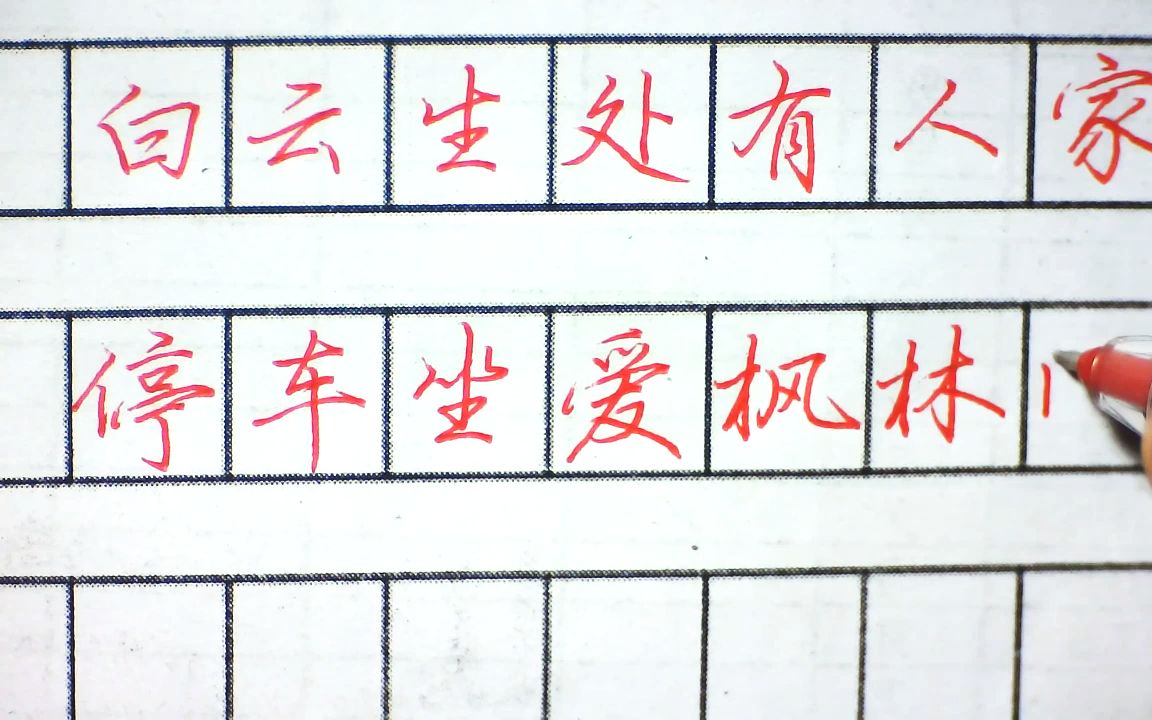 白云生处有人家
停车坐爱枫林